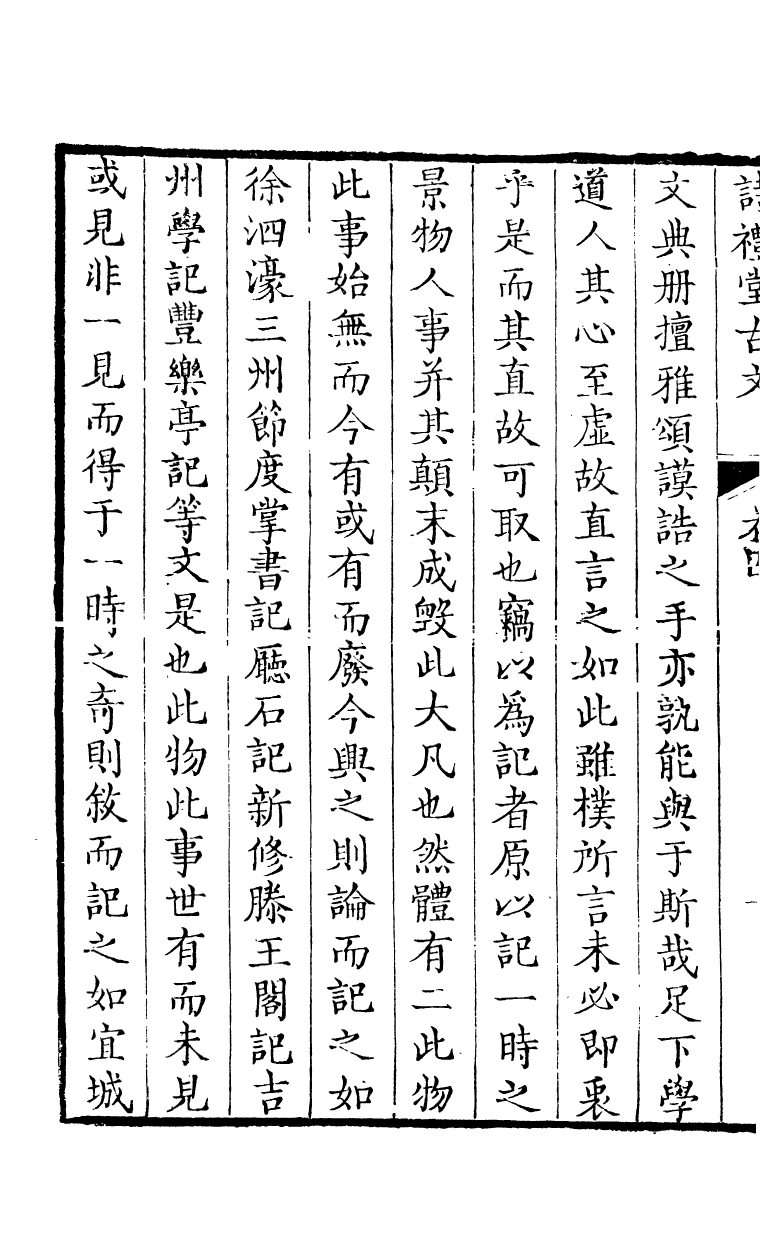 詩禮堂古文
文典册擅雅頌謨誥之手亦孰能與于斯哉足下學
道人其心至虛故直言之如此雖樸所言未必即衷
乎是而其直故可取也竊以爲記者原以記一時之
景物人事并其顛末成毀此大凡也然體有二此物
此事始無而今有或有而廢今興之則論而記之如
徐泗濠三州節度掌書記廳石記新修滕王閣記吉
州學記豐樂亭記等文是也此物此事世有而未見
或見非一見而得于一時之奇則敘而記之如宜城